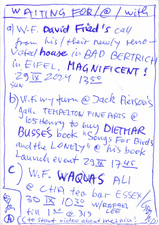 WAITING FOR/@/with
a) W.F. David Fried's call
from his/their newly reno-
vated house in BAD BERTRICH
in EIFEL, MAGNIFICENT!
29 IX 2024 17:50
b) W.F. my turn @ Jack Pierson's
gall. TEMPELTON FINE ARTS @
105 Henry to buy DIETMAR
BUSSE'S book "Songs For Birds
and the LONELY" @ his book
launch event 29 IX 17:45
c) W.F. WAQAS ALI
@ CHA tea bar ESSEX/
30 IX 1030 w/
till 1 @ 313 LEE
(to